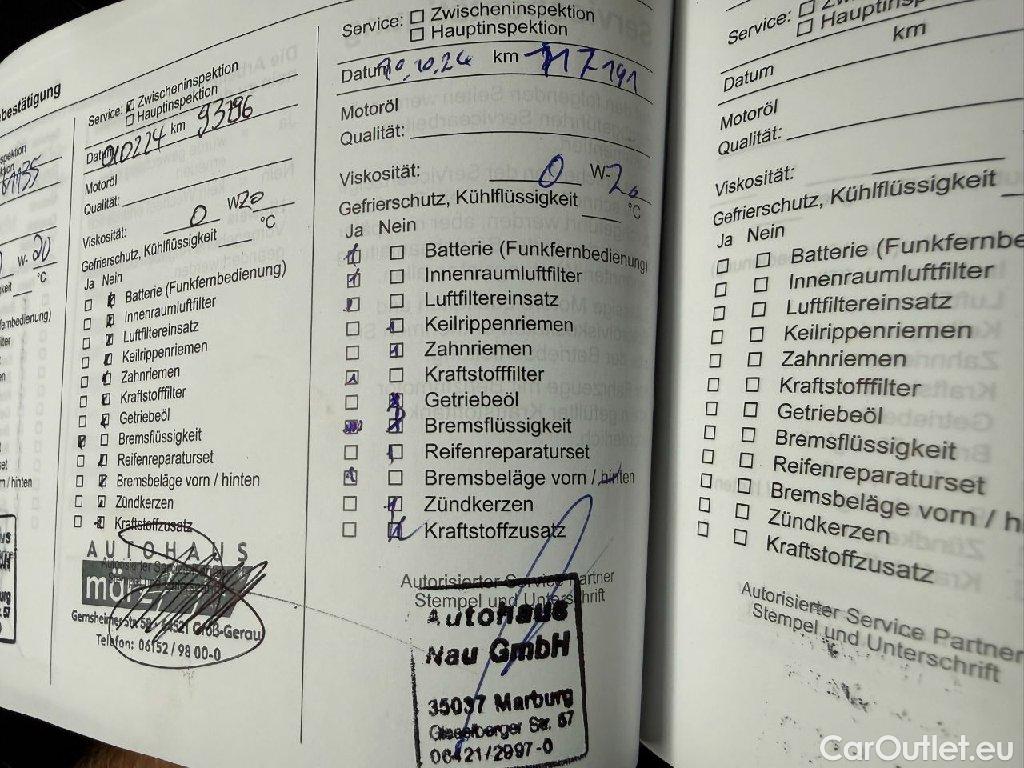 bestätigung
Service: Zwischeninspektion
Hauptinspektion
Datum 010224 km 93296
Motoröl
Qualität:
Viskosität: 0 W20
Gefrierschutz, Kühlflüssigkeit °C
Ja Nein
Batterie (Funkfernbedienung)
Innenraumluftfilter
Luftfiltereinsatz
Keilrippenriemen
Zahnriemen
Kraftstofffilter
Getriebeöl
Bremsflüssigkeit
Reifenreparaturset
Bremsbeläge vorn / hinten
Zündkerzen
Kraftstoffzusatz
AUTOHAUS
Gernsheimer Str. 58 · 64521 Groß-Gerau
Telefon: 06152 / 98 00-0
Service: Zwischeninspektion
Hauptinspektion
Datum 10.24 km 117191
Motoröl
Qualität:
Viskosität: 0 W-20
Gefrierschutz, Kühlflüssigkeit °C
Ja Nein
Batterie (Funkfernbedienung)
Innenraumluftfilter
Luftfiltereinsatz
Keilrippenriemen
Zahnriemen
Kraftstofffilter
Getriebeöl
Bremsflüssigkeit
Reifenreparaturset
Bremsbeläge vorn / hinten
Zündkerzen
Kraftstoffzusatz
Autorisierter Service Partner
Stempel und Unterschrift
Autohaus
Nau GmbH
35037 Marburg
Gisselberger Str. 57
06421/2997-0
Service:
Hauptinsp
km
Datum
Motoröl
Qualität:
Viskosität:
Gefrierschutz, Kühlflüssigkeit
Ja Nein
Batterie (Funkfernbe
Innenraumluftfilter
Luftfiltereinsatz
Keilrippenriemen
Zahnriemen
Kraftstofffilter
Getriebeöl
Bremsflüssigkeit
Reifenreparaturset
Bremsbeläge vorn / h
Zündkerzen
Kraftstoffzusatz
Autorisierter Service Partner
Stempel und Unterschrift
CarOutlet.eu